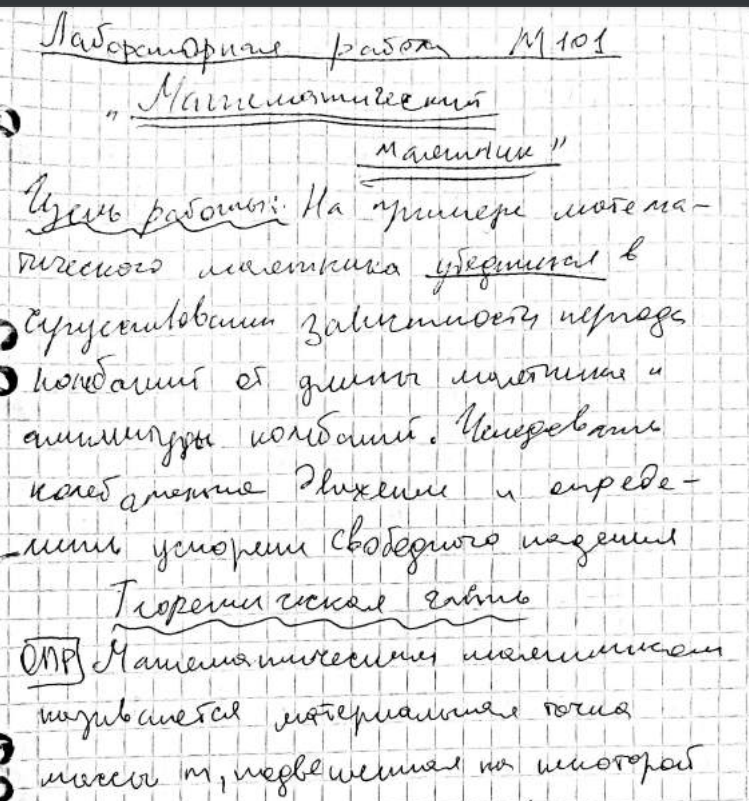 Лабораторная работа М101
"Математический
маятник"
Цель работы: На примере матема-
тического маятника убедиться в
существовании зависимости периода
колебаний от длины маятника и
амплитуды колебаний. Исследовать
колебательное движение и опреде-
лить ускорение свободного падения
Теоретическая часть
ОПР Математическим маятником
называется материальная точка
массы m, подвешенная на некоторой